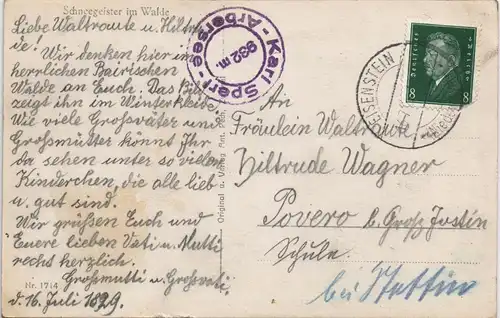 Schneegeister im Walde
Liebe Waltraute u. Hiltru
de!
Wir denken hier im
herrlichen Bairischen
Walde an Euch. Das Bild
zeigt ihn im Winterkleide.
Wie viele Großväter und
Großmütter könnt Ihr
da sehen unter so vielen
Kinderchen, die alle lieb
u. gut sind.
Wir grüßen Euch und
Euere lieben Vati u. Mutti
recht herzlich.
Großmutti u. Großvati.
Nr. 1714
d. 16. Juli 1929.
Original u. Verlag
Karl
Arbersee
982 m.
Deutsches Reich
8 8
EISENSTEIN
An
Fräulein Waltraute u.
Hiltrude Wagner
Povero b. Groß Justin
Schule
bei Stettin